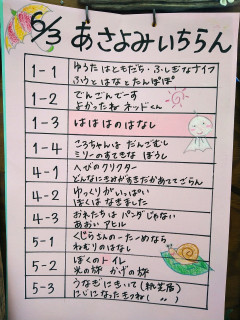 6/3 あさよみいちらん
1-1
ゆうたはともだち・ふしぎなナイフ
ふうとはなとたんぽぽ
1-2
でんごんでーす
よかったねネッドくん
1-3
はははのはなし
1-4
ころちゃんはだんごむし
ミリーのすてきなぼうし
4-1
へびのクリクター
どんなにきみがすきだかあててごらん
4-2
ゆっくりがいっぱい
ぼくはなきました
4-3
おれたちはパンダじゃない
あおいアヒル
5-1
くじらさんのーたーめなら
ねむりのはなし
5-2
ぼくのトイレ
光の旅 かげの旅
5-3
うなぎにきいて(紙芝居)
にじになったきつね( 〃 )